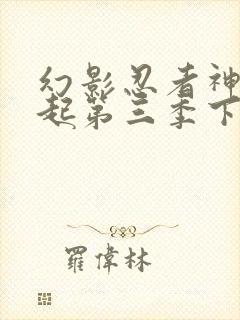 幻影忍者神
起第三季下
羅偉林